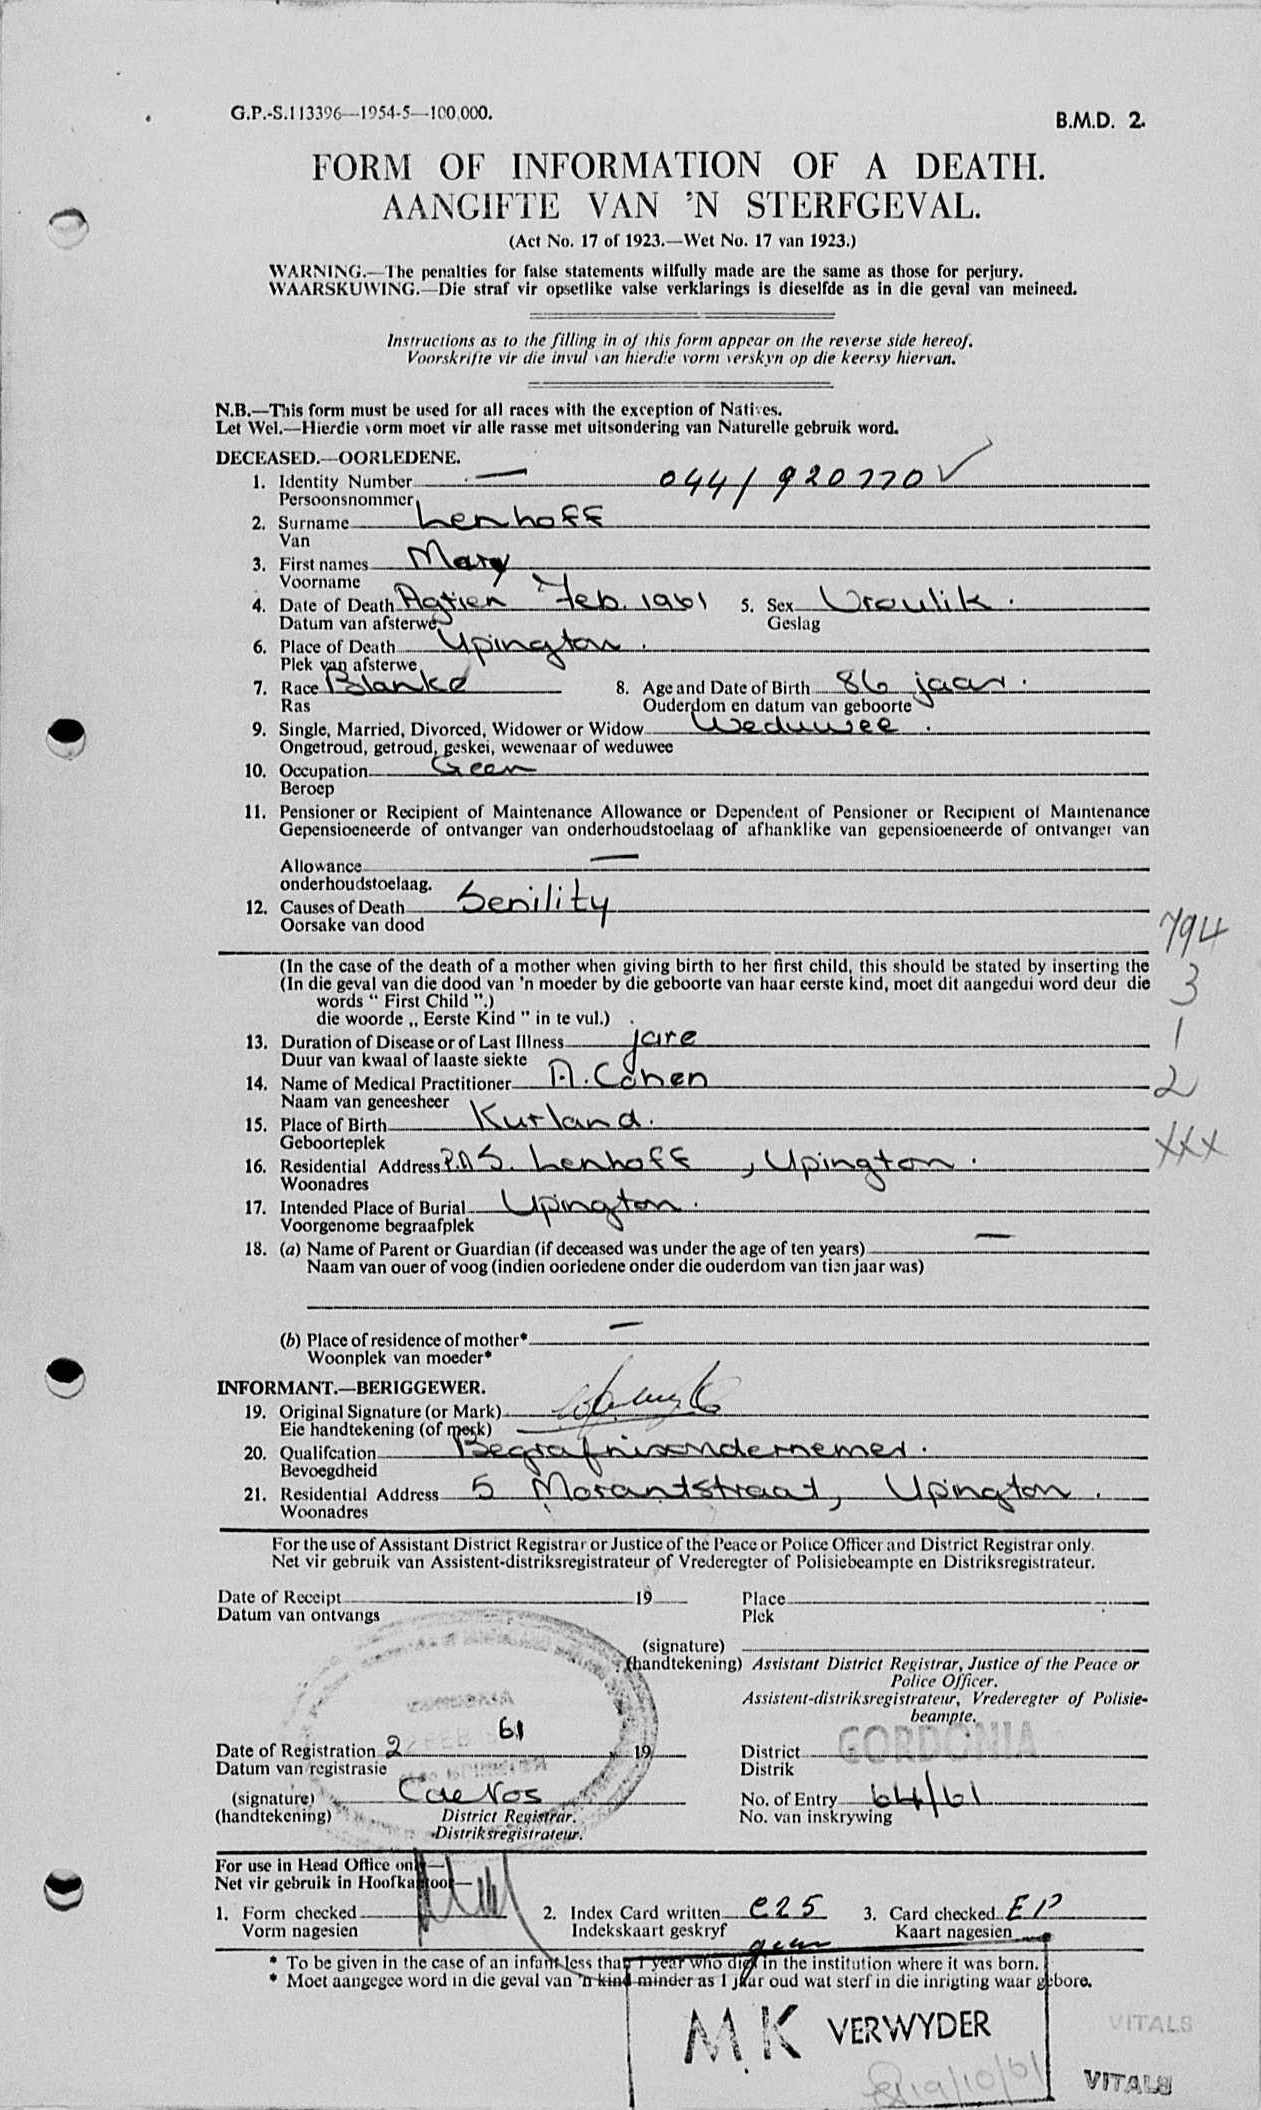 G.P.-S.113396—1954-5—100,000.
B.M.D. 2.
FORM OF INFORMATION OF A DEATH.
AANGIFTE VAN 'N STERFGEVAL.
(Act No. 17 of 1923.—Wet No. 17 van 1923.)
WARNING.—The penalties for false statements wilfully made are the same as those for perjury.
WAARSKUWING.—Die straf vir opsetlike valse verklarings is dieselfde as in die geval van meineed.
Instructions as to the filling in of this form appear on the reverse side hereof.
Voorskrifte vir die invul van hierdie vorm verskyn op die keersy hiervan.
N.B.—This form must be used for all races with the exception of Natives.
Let Wel.—Hierdie vorm moet vir alle rasse met uitsondering van Naturelle gebruik word.
DECEASED.—OORLEDENE.
1. Identity Number — 044/920770 ✓
Persoonsnommer
2. Surname Lenhoff
Van
3. First names Mary
Voorname
4. Date of Death Agtien Feb. 1961 5. Sex Vroulik.
Datum van afsterwe Geslag
6. Place of Death Upington.
Plek van afsterwe
7. Race Blanke 8. Age and Date of Birth 86 jaar.
Ras Ouderdom en datum van geboorte
9. Single, Married, Divorced, Widower or Widow Weduwee.
Ongetroud, getroud, geskei, wewenaar of weduwee
10. Occupation Geen
Beroep
11. Pensioner or Recipient of Maintenance Allowance or Dependent of Pensioner or Recipient of Maintenance
Gepensioeneerde of ontvanger van onderhoudstoelaag of afhanklike van gepensioeneerde of ontvanger van
Allowance —
onderhoudstoelaag.
12. Causes of Death Senility
Oorsake van dood
794
(In the case of the death of a mother when giving birth to her first child, this should be stated by inserting the
(In die geval van die dood van 'n moeder by die geboorte van haar eerste kind, moet dit aangedui word deur die
3
words " First Child ".)
die woorde „ Eerste Kind " in te vul.)
13. Duration of Disease or of Last Illness jare 1
Duur van kwaal of laaste siekte
14. Name of Medical Practitioner A. Cohen 2
Naam van geneesheer
15. Place of Birth Kurland.
Geboorteplek
16. Residential Address P.A S. Lenhoff, Upington. XXX
Woonadres
17. Intended Place of Burial Upington.
Voorgenome begraafplek
18. (a) Name of Parent or Guardian (if deceased was under the age of ten years) —
Naam van ouer of voog (indien oorledene onder die ouderdom van tien jaar was)
(b) Place of residence of mother* —
Woonplek van moeder*
INFORMANT.—BERIGGEWER.
19. Original Signature (or Mark)
Eie handtekening (of merk)
20. Qualifcation Begrafnisondernemer.
Bevoegdheid
21. Residential Address 5 Morantstraat, Upington.
Woonadres
For the use of Assistant District Registrar or Justice of the Peace or Police Officer and District Registrar only.
Net vir gebruik van Assistent-distriksregistrateur of Vrederegter of Polisiebeampte en Distriksregistrateur.
Date of Receipt 19 Place
Datum van ontvangs Plek
(signature)
(handtekening) Assistant District Registrar, Justice of the Peace or
Police Officer.
Assistent-distriksregistrateur, Vrederegter of Polisie-
beampte.
GORDONIA
Date of Registration 2 61 19 District GORDONIA
Datum van registrasie Distrik
(signature) No. of Entry 64/61
(handtekening) District Registrar. No. van inskrywing
Distriksregistrateur.
For use in Head Office only—
Net vir gebruik in Hoofkantoor—
1. Form checked 2. Index Card written C25 3. Card checked EP
Vorm nagesien Indekskaart geskryf Kaart nagesien
geen
* To be given in the case of an infant less than 1 year who died in the institution where it was born.
* Moet aangegee word in die geval van 'n kind minder as 1 jaar oud wat sterf in die inrigting waar gebore.
MK VERWYDER
19/10/61
VITALS
VITALS